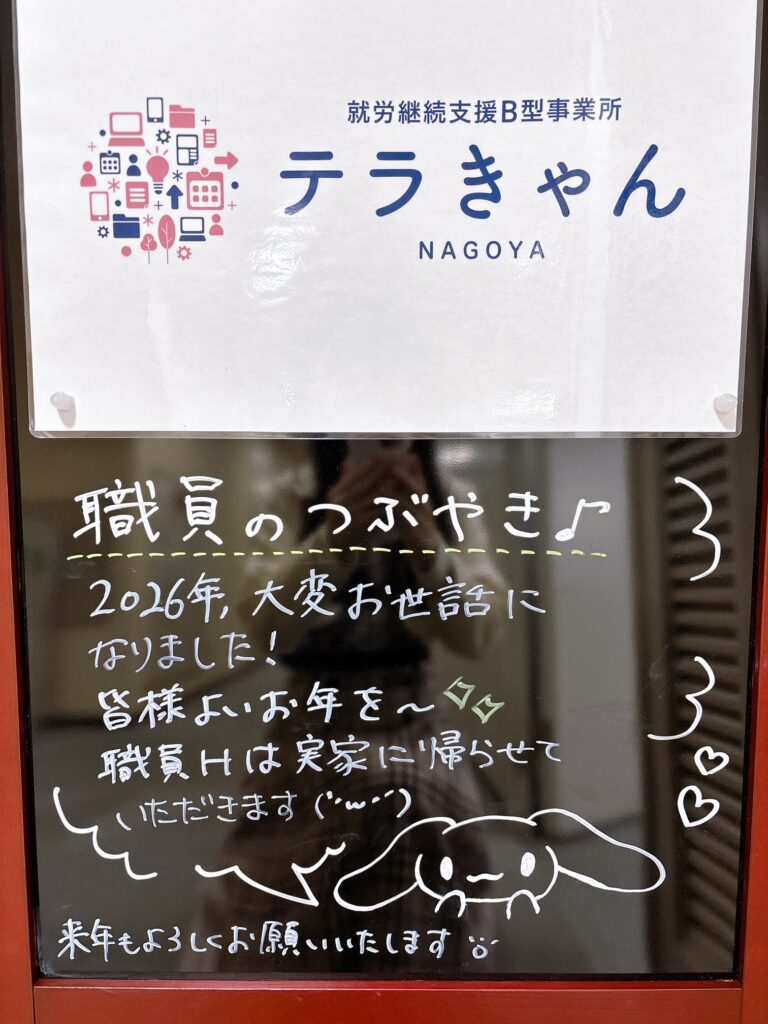 就労継続支援B型事業所
テラきゃん
NAGOYA
職員のつぶやき♪
2026年, 大変お世話に
なりました!
皆様よいお年を〜
職員Hは実家に帰らせて
いただきます(´･ω･`)
来年もよろしくお願いいたします